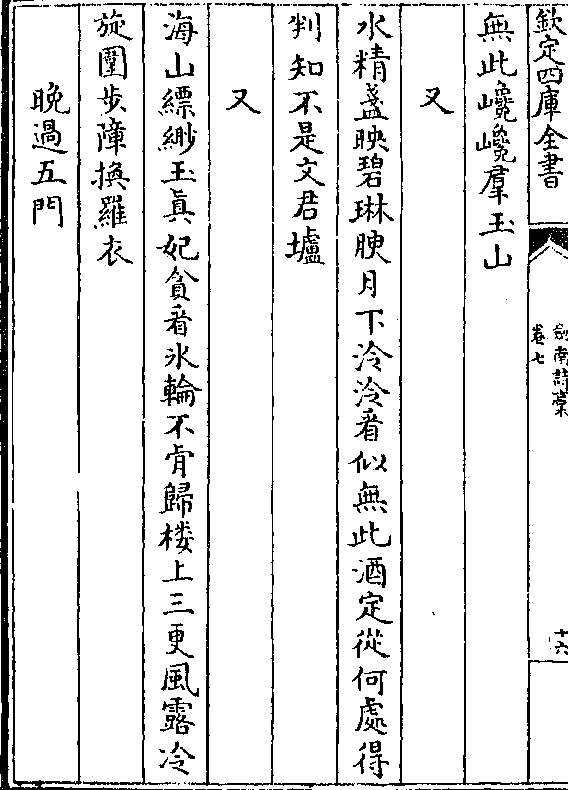 欽定四庫全書
劍南詩藁
卷七
十六
無此巉巉羣玉山
又
水精盞映碧琳腴月下泠泠看似無此酒定從何處得
判知不是文君壚
又
海山縹緲玉真妃貪看氷輪不肯歸楼上三更風露冷
旋圍步障換羅衣
晚過五門